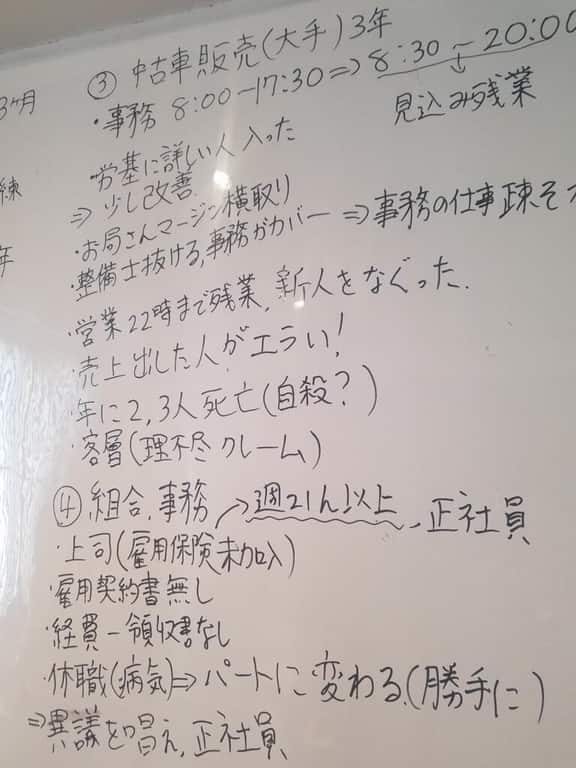 ③ 中古車販売(大手)3年
・事務 8:00-17:30⇒8:30-20:00
↓
見込み残業
労基に詳しい人入った
⇒少し改善
・お局さんマージン横取り
・整備士抜ける,事務がカバー⇒事務の仕事疎そ
・営業22時まで残業,新人をなぐった.
売上出した人がエラい!
・年に2,3人死亡(自殺?)
・客層(理不尽クレーム)
④ 組合.事務
→週21h以上 正社員
・上司(雇用保険未加入)
・雇用契約書無し
・経費-領収書なし
・休職(病気)⇒パートに変わる.(勝手に)
⇒異議を唱え,正社員
3ヶ月
練
年